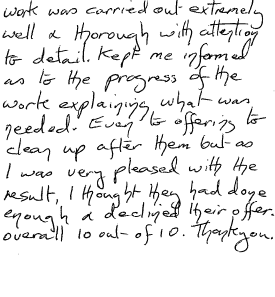 work was carried out extremely
well & thorough with attention
to detail. Kept me informed
as to the progress of the
work explaining what was
needed. Even to offering to
clean up after them but as
I was very pleased with the
result, I thought they had done
enough & declined their offer.
overall 10 out of 10. Thankyou.